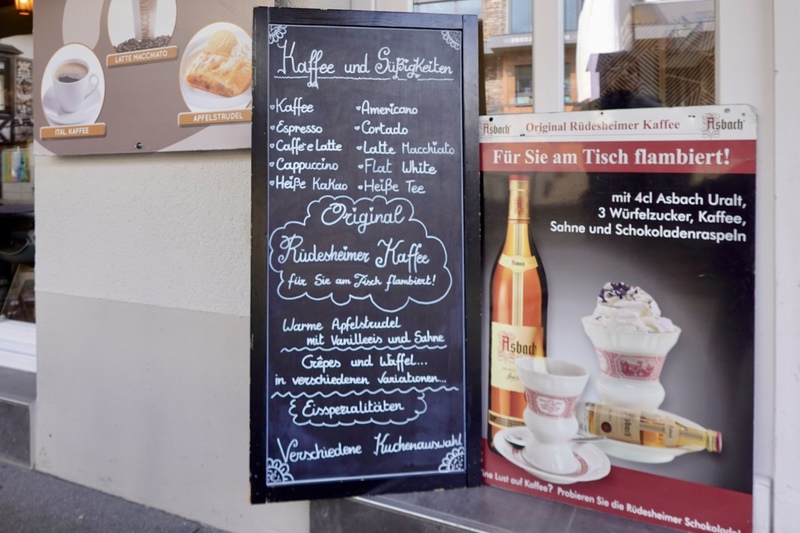 LATTE MACCHIATO
ITAL. KAFFEE
APFELSTRUDEL
Kaffee und Süßigkeiten
Kaffee
Espresso
Caffee Latte
Cappuccino
Heiße Kakao
Americano
Cortado
Latte Macchiato
Flat White
Heiße Tee
Original
Rüdesheimer Kaffee
für Sie am Tisch flambiert!
Warme Apfelstrudel
mit Vanilleeis und Sahne
Crêpes und Waffel...
in verschiedenen Variationen...
Eisspezialitäten
Verschiedene Kuchenauswahl
Asbach Original Rüdesheimer Kaffee Asbach
Für Sie am Tisch flambiert!
mit 4cl Asbach Uralt,
3 Würfelzucker, Kaffee,
Sahne und Schokoladenraspeln
Asbach
Asbach
ine Lust auf Kaffee? Probieren Sie die Rüdesheimer Schokolade!